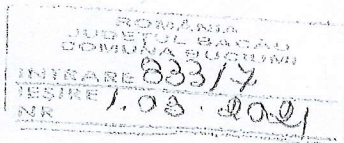 ROMÂNIA
JUDEŢUL BACĂU
COMUNA BUCIUMI
INTRARE 833/7
IEŞIRE 1.03.2021
NR